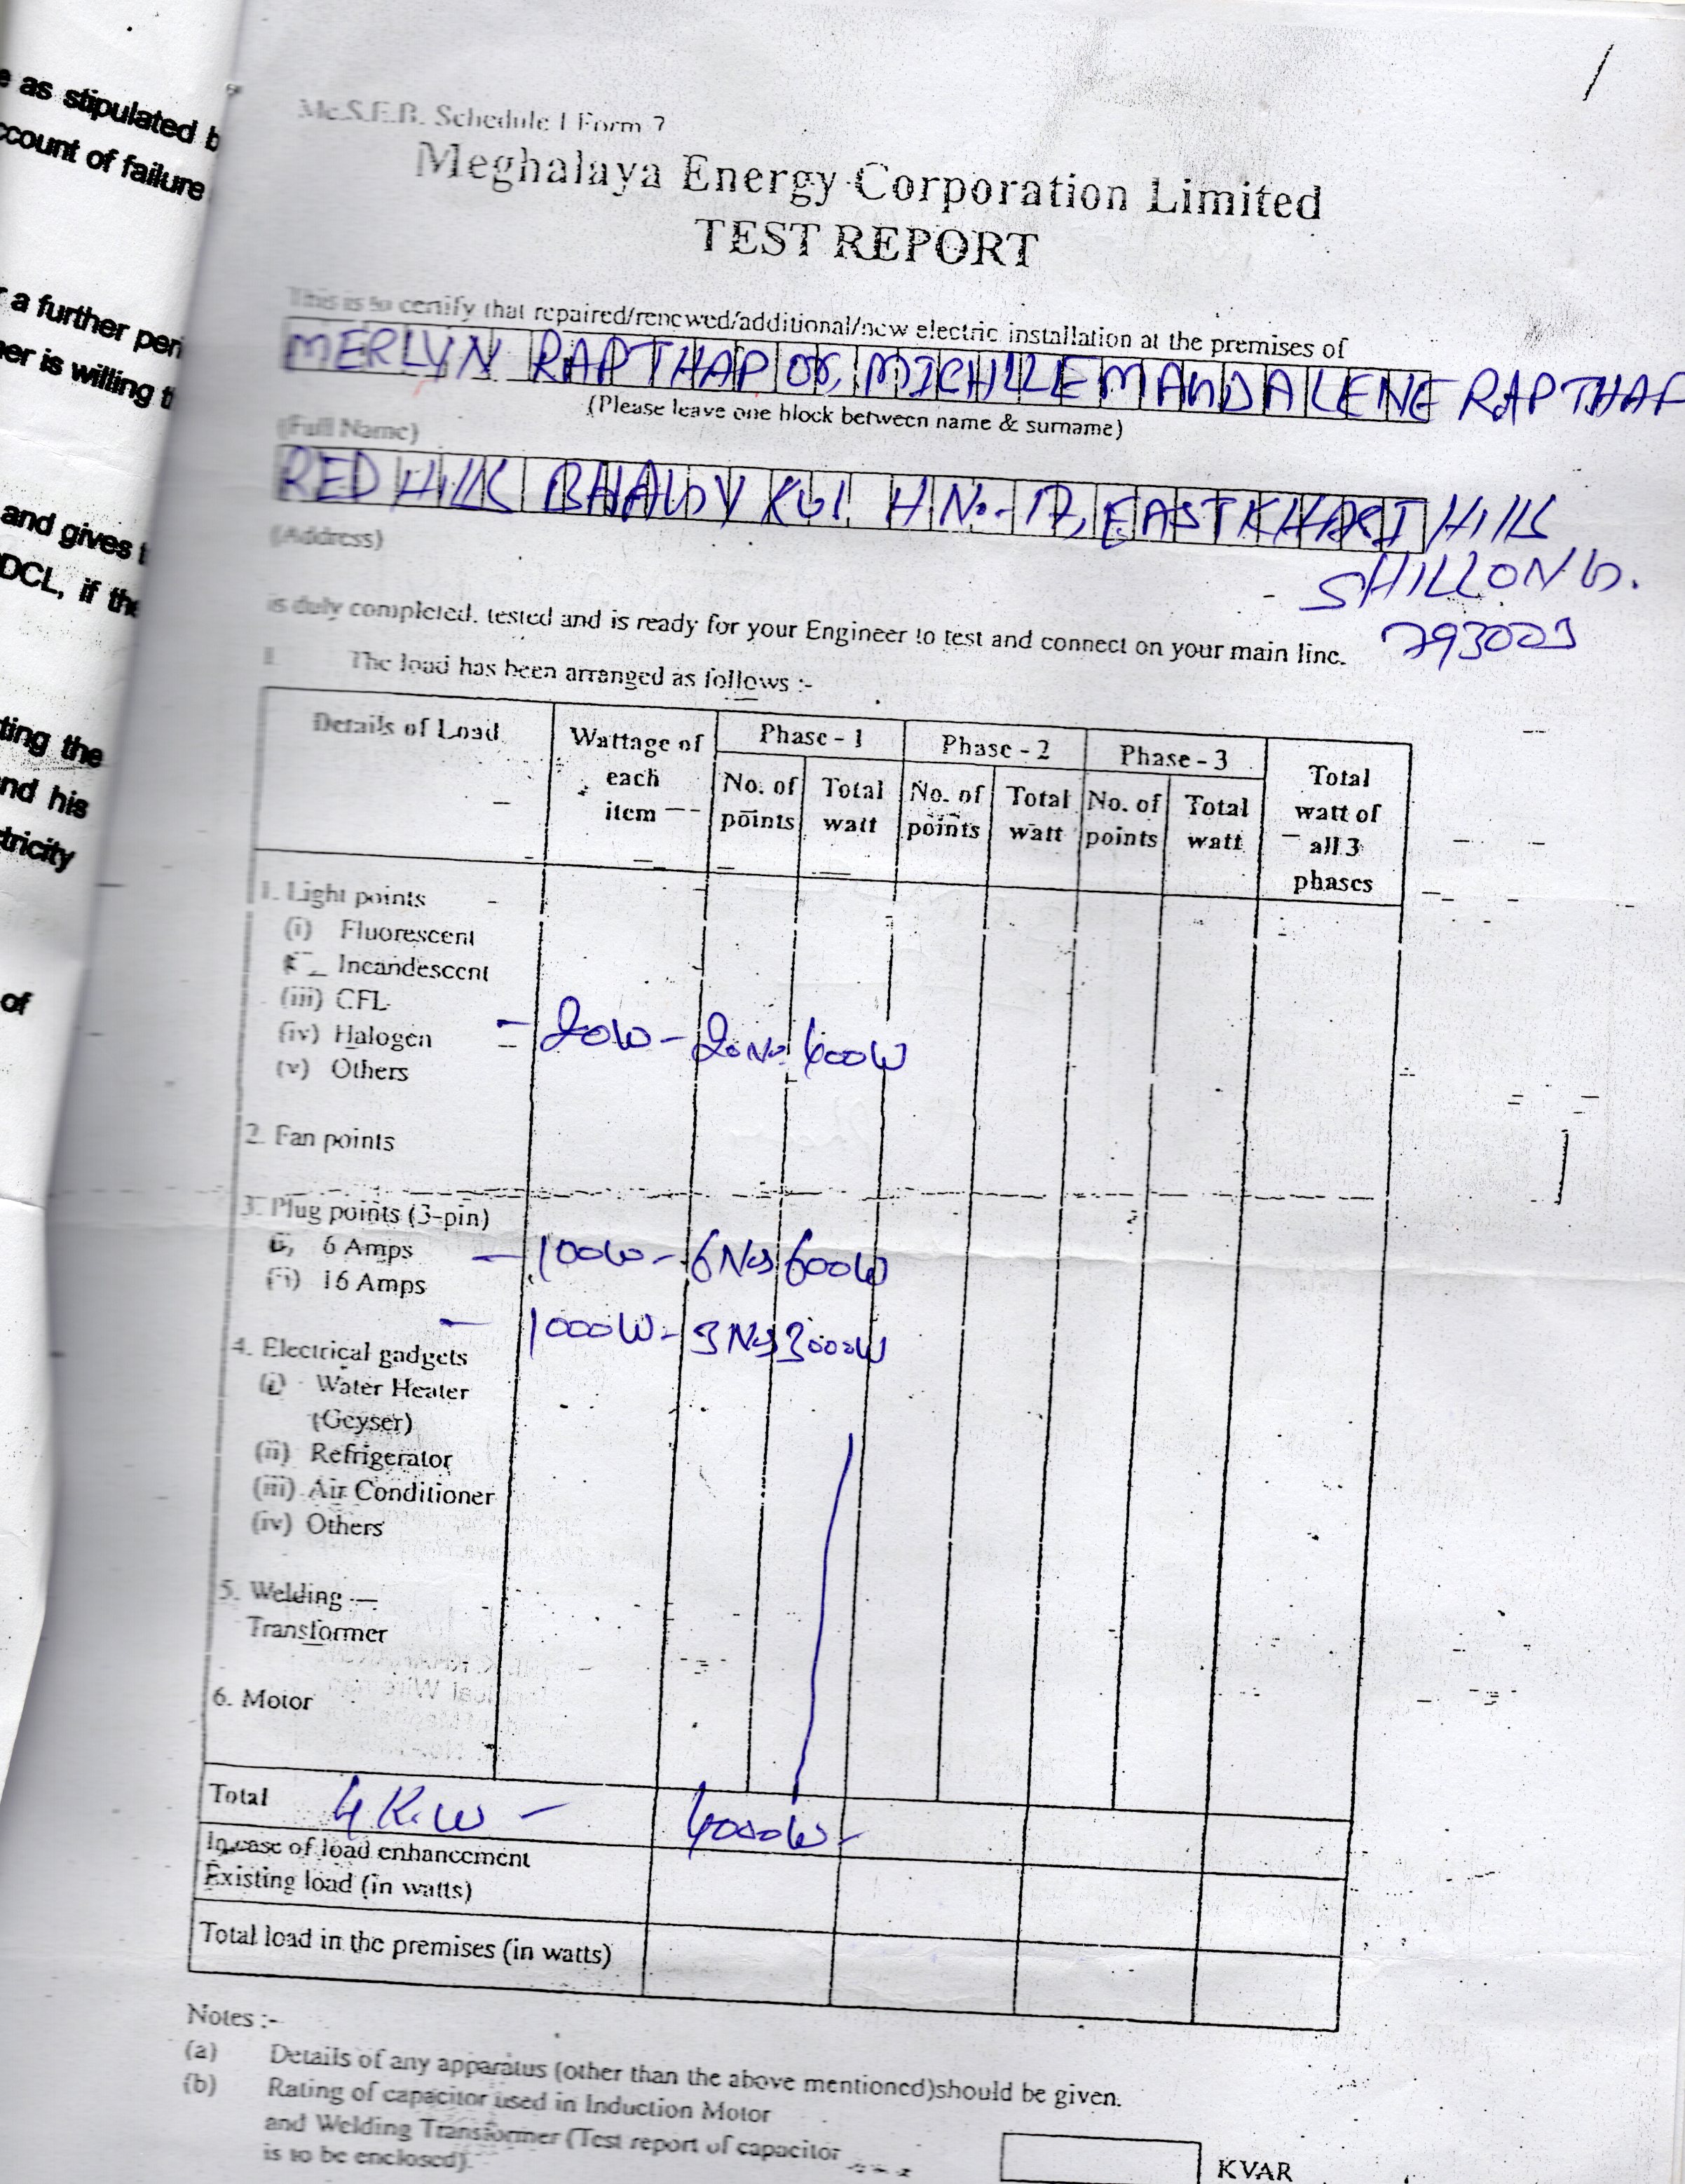 e as stipulated b
ccount of failure
r a further peri
ner is willing t
and gives t
DCL, if the
ting the
nd his
tricity
of
Me.S.E.B. Schedule I Form 7
Meghalaya Energy Corporation Limited
TEST REPORT
This is to certify that repaired/renewed/additional/new electric installation at the premises of
MERLYN RAPTHAP OR, MICHLLE MAGDALENE RAPTHAP
(Please leave one block between name & surname)
(Full Name)
RED HILLS H.No.-17, EAST KHASI HILLS
(Address)
SHILLONG.
is duly completed, tested and is ready for your Engineer to test and connect on your main line.
I. The load has been arranged as follows :-
Details of Load
Wattage of each item
Phase - 1
Phase - 2
Phase - 3
Total watt of all 3 phases
No. of points
Total watt
No. of points
Total watt
No. of points
Total watt
1. Light points
(i) Fluorescent
Incandescent
(iii) CFL
(iv) Halogen - 20W - 20No. 400W
(v) Others
2. Fan points
3. Plug points (3-pin)
6 Amps - 100W - 6Nos 600W
(ii) 16 Amps
- 1000W - 3Nos 3000W
4. Electrical gadgets
(i) Water Heater
(Geyser)
(ii) Refrigerator
(iii) Air Conditioner
(iv) Others
5. Welding
Transformer
6. Motor
Total 4K.W - 4000W-
In case of load enhancement
Existing load (in watts)
Total load in the premises (in watts)
Notes :-
(a) Details of any apparatus (other than the above mentioned)should be given.
(b) Rating of capacitor used in Induction Motor
and Welding Transformer (Test report of capacitor
is to be enclosed).
KVAR